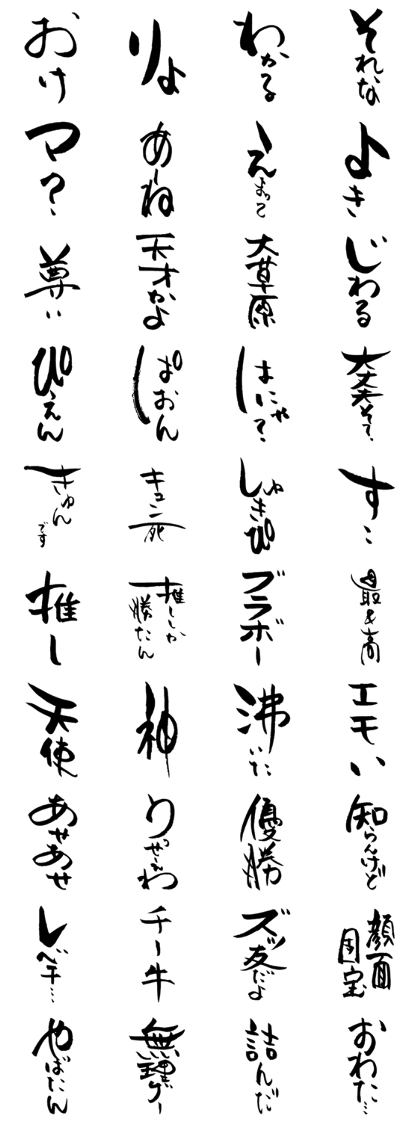 おけ
りょ
わかる
それな
マ？
あーね
え、まって
よき
尊い
天才かよ
大草原
じわる
ぴえん
ぱおん
はにゃ？
大丈夫そ？
きゅんです
キュン死
しゅきぴ
すこ
推し
推ししか勝たん
ブラボー
最&高
天使
神
沸いた
エモい
あせあせ
りぜーわ
優勝
知らんけど
レベチ…
チー牛
ズッ友だよ
顔面国宝
やばたん
無理ゲー
詰んだ
おわた…